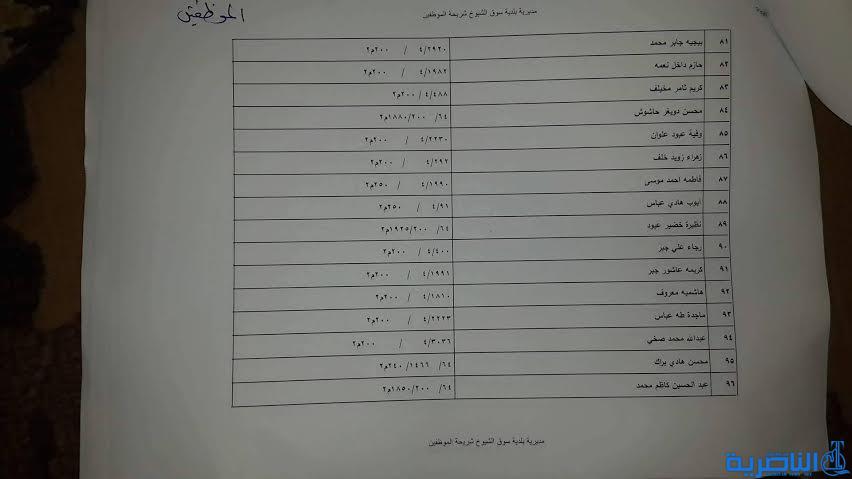 الموظفين
مديرية بلدية سوق الشيوخ شريحة الموظفين
٨١ بيجيه جابر محمد ٤/٢٩٢٠ / ٢٠٠م٢
٨٢ حازم داخل نعمه ٤/١٩٨٢ / ٢٠٠م٢
٨٣ كريم ثامر مخيلف ٤/٤٨٨ / ٢٠٠م٢
٨٤ محسن دويغر حاشوش ٦٤/ ١٨٨٠/٢٠٠م٢
٨٥ وفية عبود علوان ٤/٢٢٣٠ / ٢٠٠م٢
٨٦ زهراء زويد خلف ٤/٢٩٢ / ٢٠٠م٢
٨٧ فاطمه احمد موسى ٤/١٩٩٠ / ٢٥٠م٢
٨٨ ايوب هادي عباس ٤/٩١ / ٢٥٠م٢
٨٩ نظيرة خضير عبود ٦٤/ ١٩٢٥/٢٠٠م٢
٩٠ رجاء علي جبر ٤/٤٠٠ / ٢٠٠م٢
٩١ كريمه عاشور جبر ٤/١٩٩١ / ٢٠٠م٢
٩٢ هاشميه معروف ٤/١٨١٠ / ٢٠٠م٢
٩٣ ماجدة طه عباس ٤/٢٢٢٣ / ٢٠٠م٢
٩٤ عبدالله محمد صخي ٤/٣٠٣٦ / ٢٠٠م٢
٩٥ محسن هادي براك ٦٤/ ١٤٦٦/ ٢٤٠م٢
٩٦ عبد الحسين كاظم محمد ٦٤/ ١٨٥٠/٢٠٠م٢
مديرية بلدية سوق الشيوخ شريحة الموظفين
الناصرية